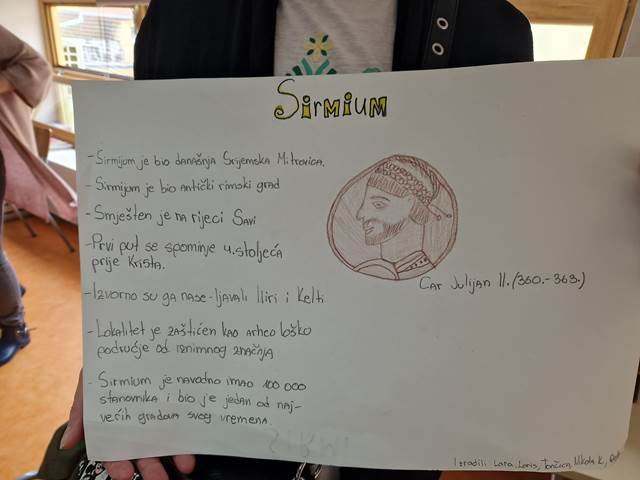 Sirmium
- Sirmijum je bio današnja Srijemska Mitrovica.
- Sirmijum je bio antički rimski grad
- Smješten je na rijeci Savi
- Prvi put se spominje 4. stoljeća
prije Krista.
- Izvorno su ga nase-ljavali Iliri i Kelti
- Lokalitet je zaštićen kao arheo loško
područje od iznimnog značnja
- Sirmium je navodno imao 100 000
stanovnika i bio je jedan od naj-
većih gradova svog vremena.
Car Julijan II. (360.-363.)
Izradili Lara, Loris, Nikola K,